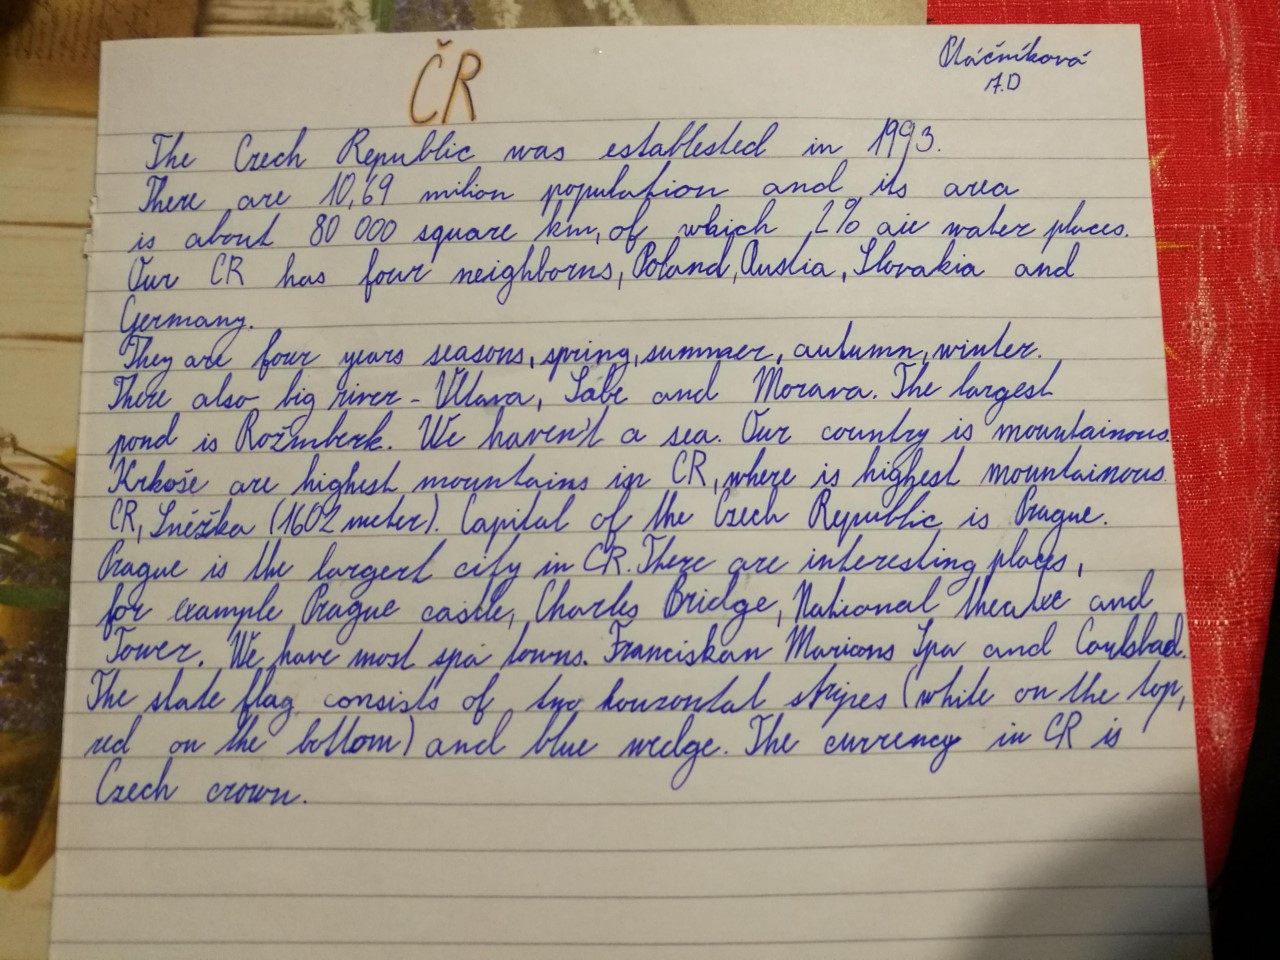 ČR
Pláčníková
7.D
The Czech Republic was establested in 1993.
There are 10,69 milion population and its area
is about 80 000 square km, of which 2% are water places.
Our CR has four neighborns, Poland, Austia, Slovakia and
Germany.
They are four years seasons, spring, summer, autumn, winter.
There also big river - Vltava, Labe and Morava. The largest
pond is Rožmberk. We haven't a sea. Our country is mountainous.
Krkoše are highest mountains in CR, where is highest mountainous
CR, Sněžka (1602 meter). Capital of the Czech Republic is Prague.
Prague is the largert city in CR. There are interesting places,
for example Prague castle, Charles Bridge, National theatre and
Tower. We have most spa towns. Franciskan Marions Spa and Carlsbad.
The state flag consists of two hourzontal stripes (white on the top,
red on the bottom) and blue wedge. The currency in CR is
Czech crown.